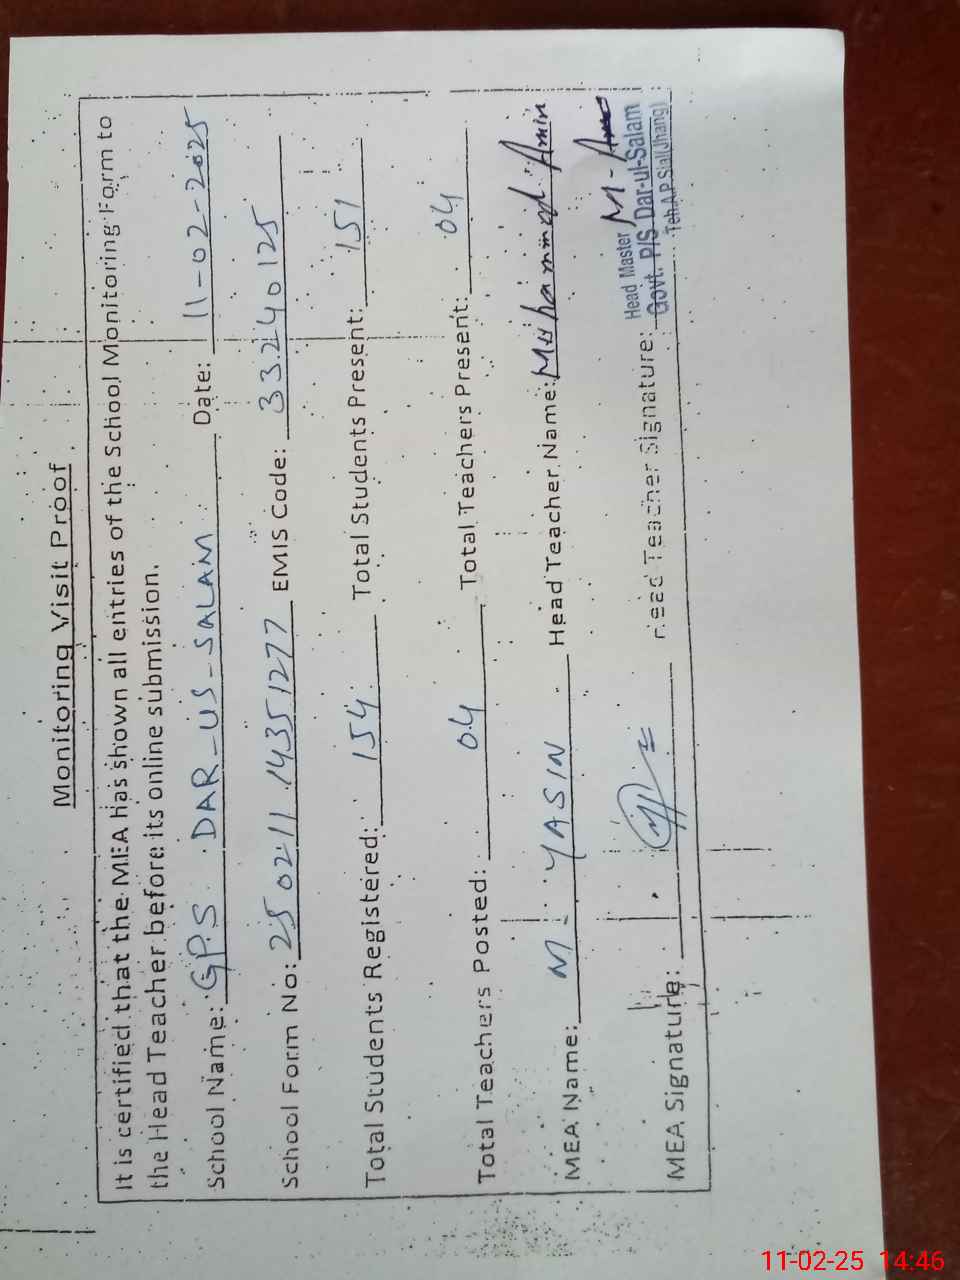 Monitoring Visit Proof
It is certified that the MEA has shown all entries of the School Monitoring Form to
the Head Teacher before its online submission.
School Name: GPS DAR-US-SALAM Date: 11-02-2025
School Form No: 250211 14351277 EMIS Code: 33240125
Total Students Registered: 154 Total Students Present: 151
Total Teachers Posted: 04 Total Teachers Present: 04
MEA Name: M. YASIN Head Teacher Name: Muhammad Amin
MEA Signature: Head Teacher Signature: M. Amin
Head Master
Govt. P/S Dar-ul-Salam
Teh A.P Sial(Jhang)
11-02-25 14:46